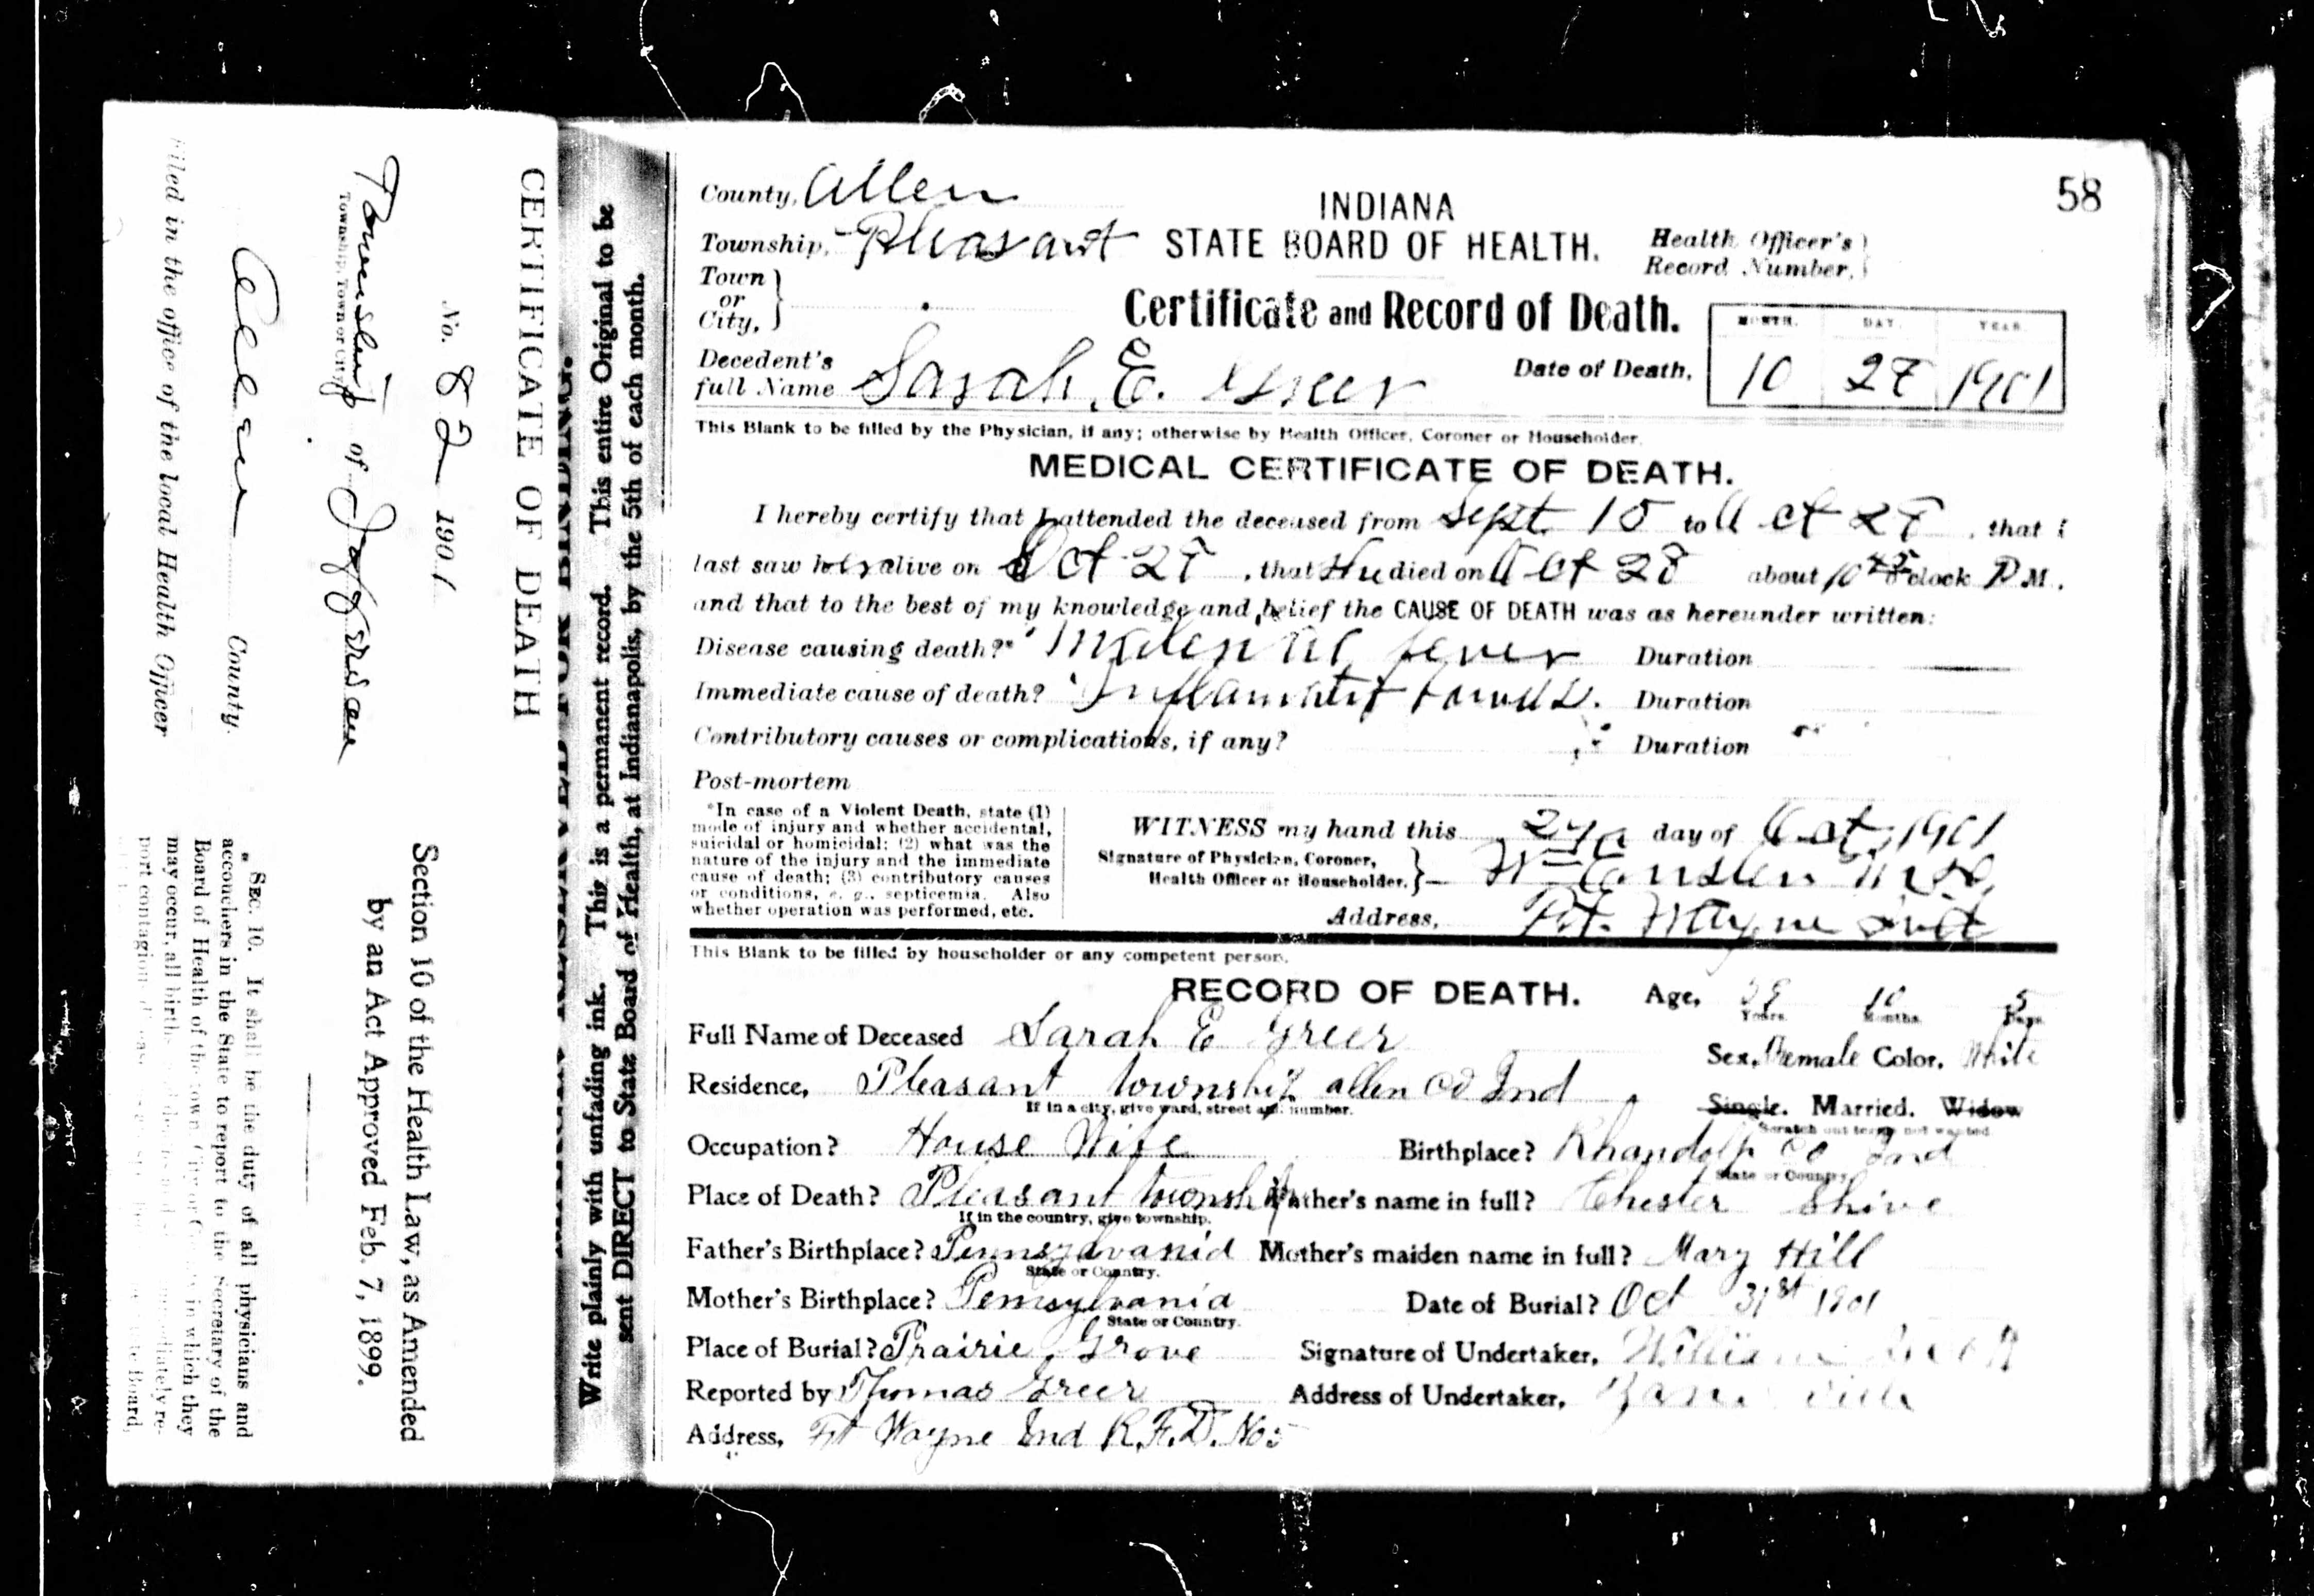 CERTIFICATE OF DEATH
No. 82 1901
Township of Jefferson
Township, Town or City
Allen County.
Filed in the office of the local Health Officer
Section 10 of the Health Law, as Amended
by an Act Approved Feb. 7, 1899.
SEC. 10. It shall be the duty of all physicians and
accouchers in the State to report to the Secretary of the
Board of Health of the town, City or County in which they
may occur, all births
port contagious
Write plainly with unfading ink. This is a permanent record. This entire Original to be
sent DIRECT to State Board of Health, at Indianapolis, by the 5th of each month.
58
County, Allen
INDIANA
Township, Pleasant STATE BOARD OF HEALTH. Health Officer's
Record Number,
Town
or
City,
Certificate and Record of Death.
MONTH. DAY. YEAR.
Decedent's
full Name Sarah E. Greer Date of Death, 10 28 1901
This Blank to be filled by the Physician, if any; otherwise by Health Officer, Coroner or Householder.
MEDICAL CERTIFICATE OF DEATH.
I hereby certify that I attended the deceased from Sept. 15 to Oct 28, that I
last saw her alive on Oct 28, that She died on Oct 28 about 10 45 o'clock P M.
and that to the best of my knowledge and belief the CAUSE OF DEATH was as hereunder written:
Disease causing death?* fever Duration
Immediate cause of death? Duration
Contributory causes or complications, if any? Duration
Post-mortem
*In case of a Violent Death, state (1)
mode of injury and whether accidental,
suicidal or homicidal; (2) what was the
nature of the injury and the immediate
cause of death; (3) contributory causes
or conditions, e. g., septicemia. Also
whether operation was performed, etc.
WITNESS my hand this 29 day of Oct, 1901
Signature of Physician, Coroner,
Health Officer or Householder.
Address, Ft. Wayne Ind
This Blank to be filled by householder or any competent person.
RECORD OF DEATH. Age, 10 5
Years. Months. Days.
Full Name of Deceased Sarah E Greer
Sex, Female Color, White
Residence, Pleasant township allen co Ind
If in a city, give ward, street and number.
Single. Married. Widow
Scratch out terms not wanted.
Occupation? House Wife Birthplace? Rhandolp co Ind
State or Country.
Place of Death? Pleasant township Father's name in full? Chester Shive
If in the country, give township.
Father's Birthplace? Pennsylvania Mother's maiden name in full? Mary Hill
State or Country.
Mother's Birthplace? Pennsylvania Date of Burial? Oct 31st 1901
State or Country.
Place of Burial? Prairie Grove Signature of Undertaker, William
Reported by Thomas Greer Address of Undertaker,
Address, Ft Wayne Ind R.F.D. No 5